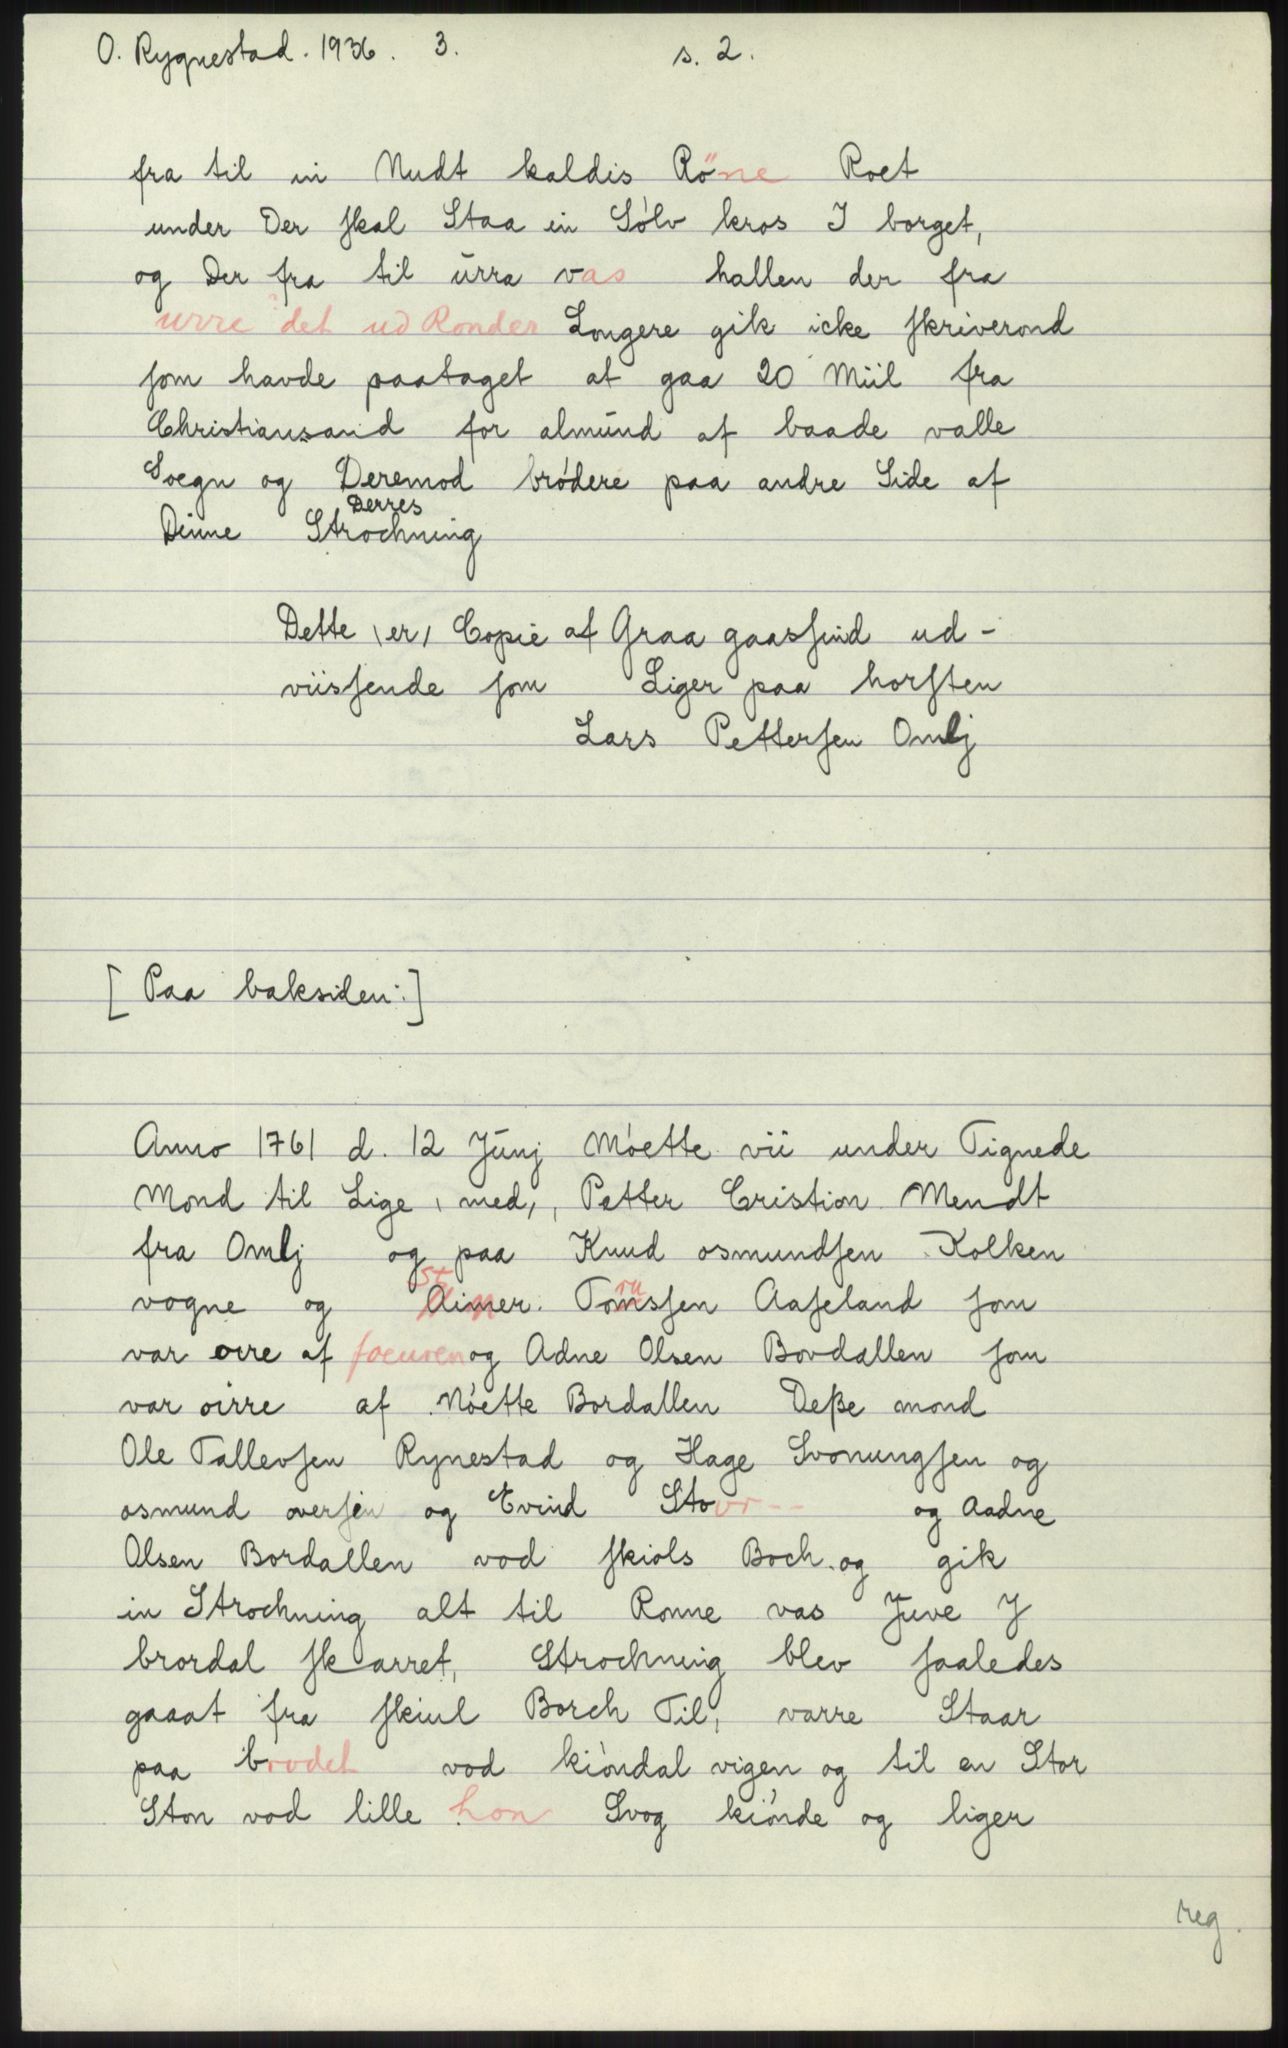 O. Rygnestad. 1936. 3. s. 2.
fra til in Nudt kaldis Röne Roet
under Der skal Staa in Sólv kros I borget,
og Der fra til urra vas hallen der fra
urre det ud Ronder Longere gik icke skriverond
som havde paataget at gaa 20 Miil fra
Christiansand for almúnd af baade valle
Soegn og Deremod bródere paa andre Side af
Derres
Dinne Strochning
Dette \er/ Copie af Graa gaassind ud-
viissende som Liger paa horsten
Lars Pettersen Omlj
[Paa baksiden:]
Anno 1761 d. 12 Júnj Móette vii under Tignede
Mond til Lige, med,, Petter Cristion Mendt
fra Omlj og paa Knud osmundsen Kolken
vogne og Aimer. Tomssen Aaseland som
var oire af focuren og Adne Olsen Bordallen som
var oirre af Móette Bordallen Deße mond
Ole Tallevsen Rynestad og Hage Svonungsen og
osmund oversen og Evind Stovr-- og Aadne
Olsen Bordallen vod skiols Boch og gik
in Strochning alt til Ronne vas Juve I
brordal skarret, Strochning blev saaledes
gaaat fra skiul Borch Til, varre Staar
paa brodet vod kióndal vigen og til en Stor
Ston vod lille hon Svog kiónde og liger
reg.